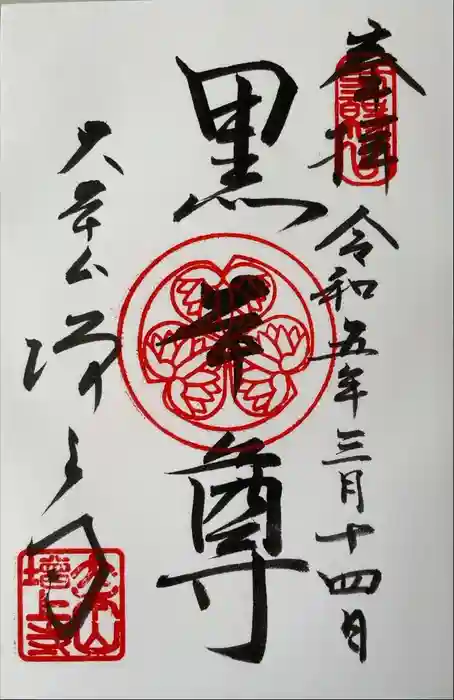 奉拝
令和五年三月十四日
黒本尊
大本山
増上寺